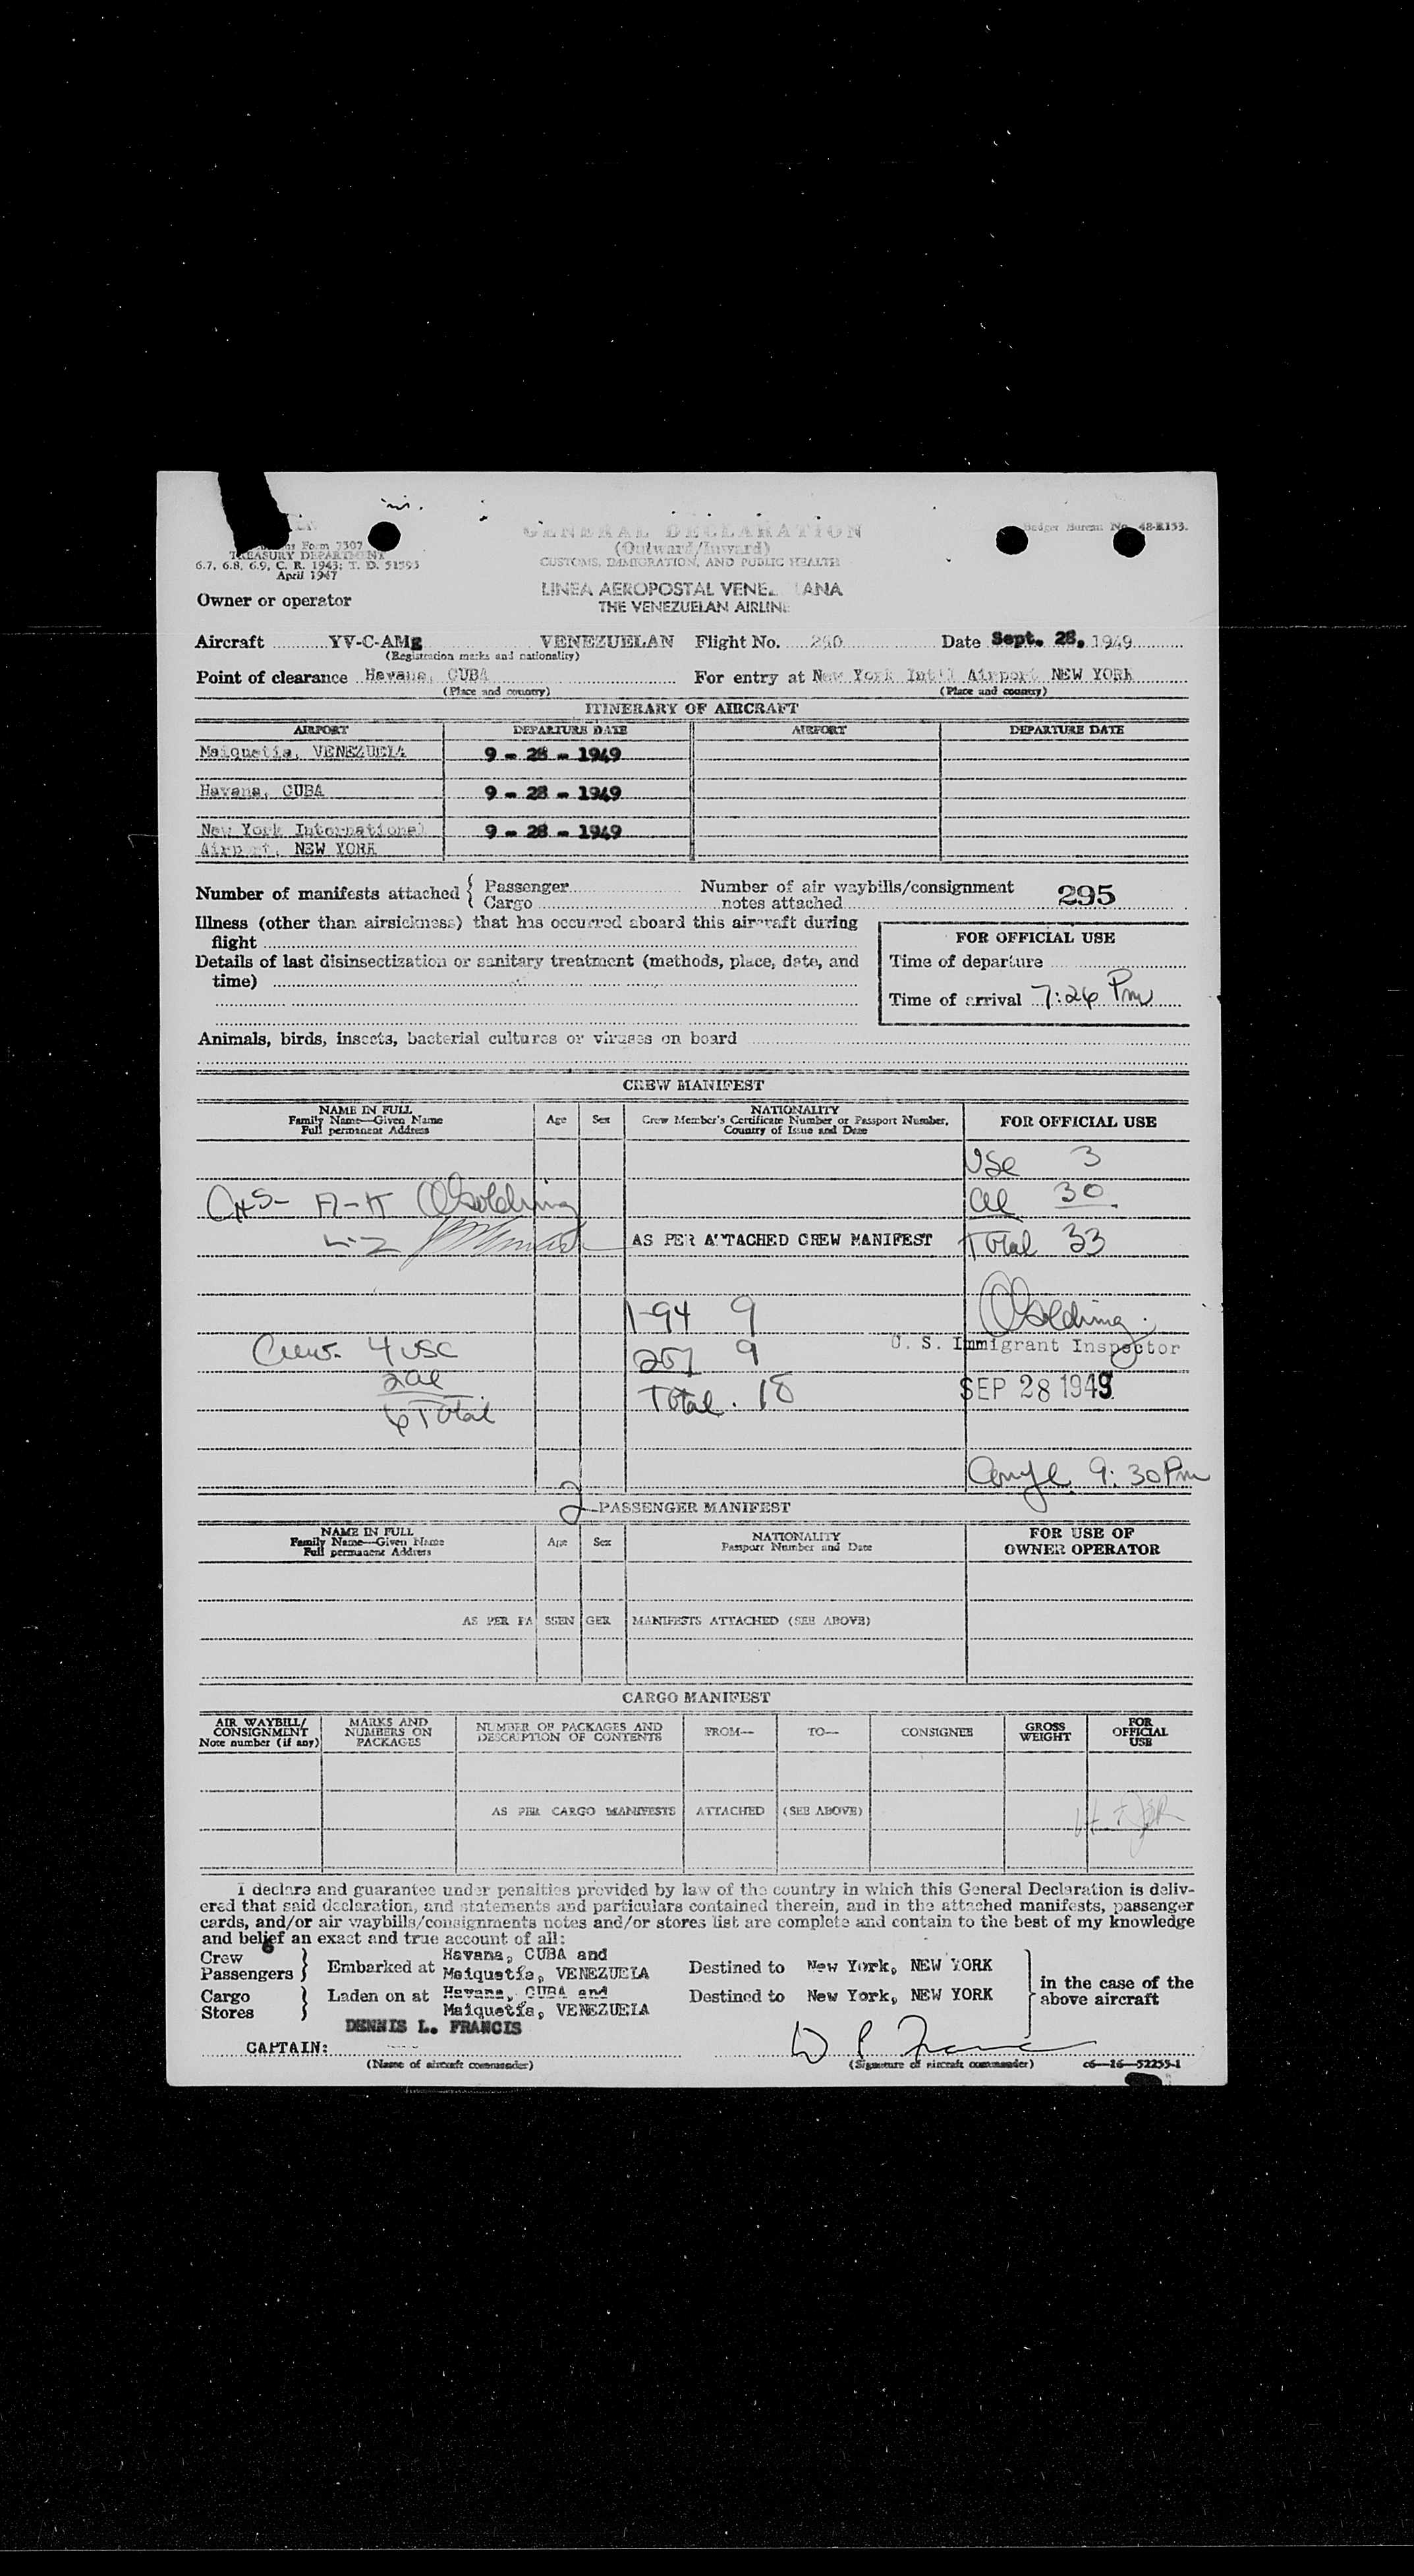 GENERAL DECLARATION
Budget Bureau No. 48-R133.
Form 7507
(Outward/Inward)
TREASURY DEPARTMENT
CUSTOMS, IMMIGRATION, AND PUBLIC HEALTH
6.7, 6.8, 6.9, C. R. 1943; T. D. 51595
April 1947
LINEA AEROPOSTAL VENEZ ANA
Owner or operator
THE VENEZUELAN AIRLINE
Aircraft YV-C-AMg VENEZUELAN Flight No. 260 Date Sept. 28, 1949
(Registration marks and nationality)
Point of clearance Havana, CUBA For entry at New York Int'l Airport NEW YORK
(Place and country) (Place and country)
ITINERARY OF AIRCRAFT
AIRPORT DEPARTURE DATE AIRPORT DEPARTURE DATE
Maiquetia, VENEZUELA 9 - 28 - 1949
Havana, CUBA 9 - 28 - 1949
New York International 9 - 28 - 1949
Airport, NEW YORK
Number of manifests attached { Passenger Number of air waybills/consignment 295
Cargo notes attached
Illness (other than airsickness) that has occurred aboard this aircraft during
flight
FOR OFFICIAL USE
Details of last disinsectization or sanitary treatment (methods, place, date, and
time)
Time of departure
Time of arrival 7:26 Pm
Animals, birds, insects, bacterial cultures or viruses on board
CREW MANIFEST
NAME IN FULL Age Sex NATIONALITY FOR OFFICIAL USE
Family Name—Given Name Crew Member's Certificate Number or Passport Number,
Full permanent Address Country of Issue and Date
USC 3
A-K OGolding al 30
L-Z AS PER ATTACHED CREW MANIFEST Total 33
1-94 9 OGolding
U. S. Immigrant Inspector
Crew. 4 USC 257 9
2 al Total. 18 SEP 28 1949
6 Total
9:30 Pm
2 PASSENGER MANIFEST
NAME IN FULL Age Sex NATIONALITY FOR USE OF
Family Name—Given Name Passport Number and Date OWNER OPERATOR
Full permanent Address
AS PER PA SSEN GER MANIFESTS ATTACHED (SEE ABOVE)
CARGO MANIFEST
AIR WAYBILL/ CONSIGNMENT Note number (if any) MARKS AND NUMBERS ON PACKAGES NUMBER OF PACKAGES AND DESCRIPTION OF CONTENTS FROM— TO— CONSIGNEE GROSS WEIGHT FOR OFFICIAL USE
AS PER CARGO MANIFESTS ATTACHED (SEE ABOVE)
I declare and guarantee under penalties provided by law of the country in which this General Declaration is deliv-
ered that said declaration, and statements and particulars contained therein, and in the attached manifests, passenger
cards, and/or air waybills/consignments notes and/or stores list are complete and contain to the best of my knowledge
and belief an exact and true account of all:
Crew Havana, CUBA and
Passengers } Embarked at Maiquetía, VENEZUELA Destined to New York, NEW YORK
in the case of the
Cargo } Laden on at Havana, CUBA and Destined to New York, NEW YORK above aircraft
Stores Maiquetía, VENEZUELA
DENNIS L. FRANCIS
CAPTAIN: D L Francis
(Name of aircraft commander) (Signature of aircraft commander) c6—16—52255-1